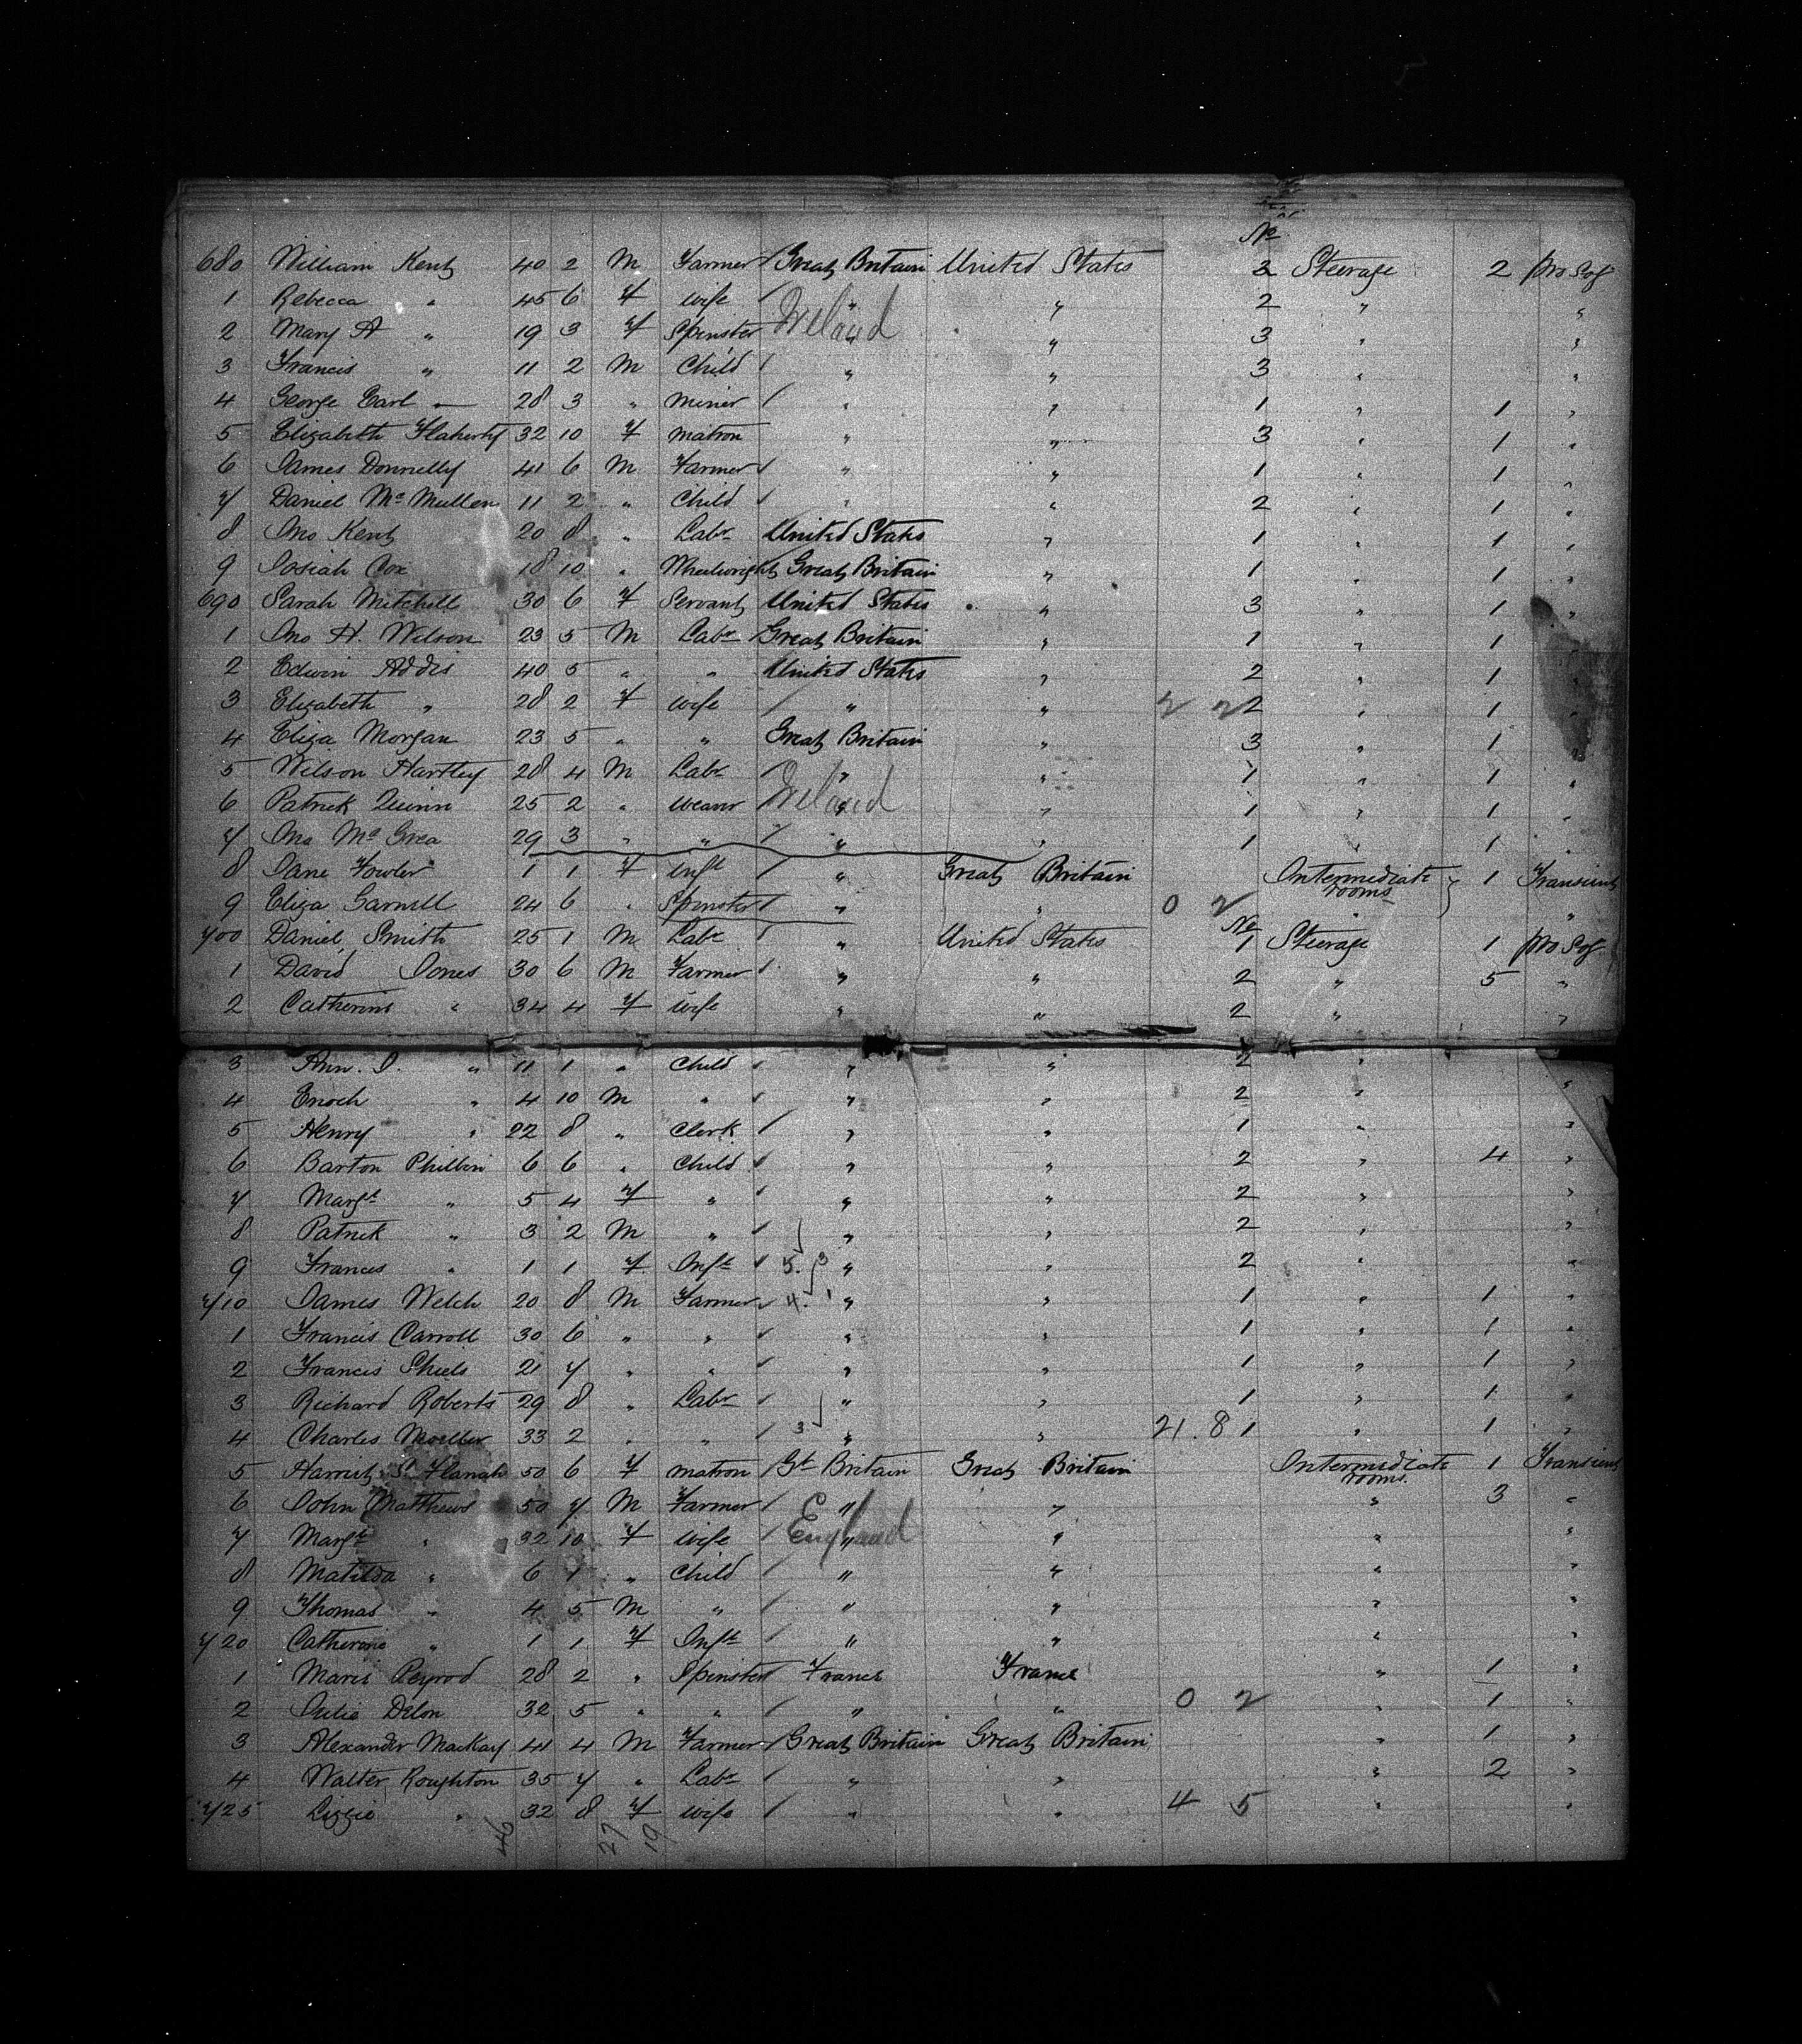 No
680 William Kent 40 2 M Farmer Great Britain United States 3 Steerage 2 Pro Soj
1 Rebecca " 45 6 F wife " " 2 " "
Ireland
2 Mary A " 19 3 F Spinster " " 3 " "
3 Francis " 11 2 M Child " " 3 " "
4 George Earl 28 3 " miner " " 1 " 1 "
5 Elizabeth Flaherty 32 10 F matron " " 3 " 1 "
6 James Donnelly 41 6 M Farmer " " 1 " 1 "
7 Daniel McMullen 11 2 " Child " " 2 " 1 "
8 Jno Kent 20 8 " Labr United States " 1 " 1 "
9 Josiah Cox 18 10 " Wheelwright Great Britain " 1 " 1 "
690 Sarah Mitchell 30 6 F Servant United States " 3 " 1 "
1 Jno H. Wilson 23 5 M Labr Great Britain " 1 " 1 "
2 Edwin Addis 40 5 " " United States " 2 " 1 "
3 Elizabeth " 28 2 F wife " " 2 2 2 " 1 "
4 Eliza Morgan 23 5 " " Great Britain " 3 " 1 "
5 Wilson Hartley 28 4 M Labr " " 1 " 1 "
Ireland
6 Patrick Quinn 25 2 " weaver " " 1 " 1 "
7 Jno McGrea 29 3 " " " " 1 " 1 "
8 Jane Fowler 1 1 F Inft " Great Britain Intermediate rooms 1 Transient
9 Eliza Garnell 24 6 " Spinster " " 0 2 " "
No
700 Daniel Smith 25 1 M Labr " United States 1 Steerage 1 Pro Soj
1 David Jones 30 6 M Farmer " " 2 " 5 "
2 Catherine " 34 4 F wife " " 2 " "
3 Ann. J. " 11 1 " Child " " 2 " "
4 Enoch " 4 10 M " " " 2 " "
5 Henry " 22 8 " Clerk " " 1 " "
6 Barton Philbin 6 6 " Child " " 2 " 4 "
7 Margt " 5 4 F " " " 2 " "
8 Patrick " 3 2 M " " " 2 " "
9 Frances " 1 1 F Inft 5. 3 " " 2 " "
710 James Welch 20 8 M Farmer 4. 1 " " 1 " 1 "
1 Francis Carroll 30 6 " " " " 1 " 1 "
2 Francis Shiels 21 7 " " " " 1 " 1 "
3 Richard Roberts 29 8 " Labr " " 1 " 1 "
4 Charles 33 2 " " 3 " " 21. 8 1 " 1 "
5 Harriet St 50 6 F matron Gt Britain Great Britain Intermediate rooms. 1 Transient
6 John Matthews 50 7 M Farmer " " " 3 "
England
7 Margt " 32 10 F wife " " " "
8 Matilda " 6 1 " Child " " " "
9 Thomas " 4 5 M " " " " "
720 Catherine " 1 1 F Inft " " " "
1 Marie Peyrod 28 2 " Spinster France France " 1 "
2 Julie Delon 32 5 " " " " 0 2 " 1 "
3 Alexander MacKay 41 4 M Farmer Great Britain Great Britain " 1 "
4 Walter Roughton 35 7 " Labr " " " 2 "
725 Lizzie " 32 8 F wife " " 4 5 " "
46 27 19